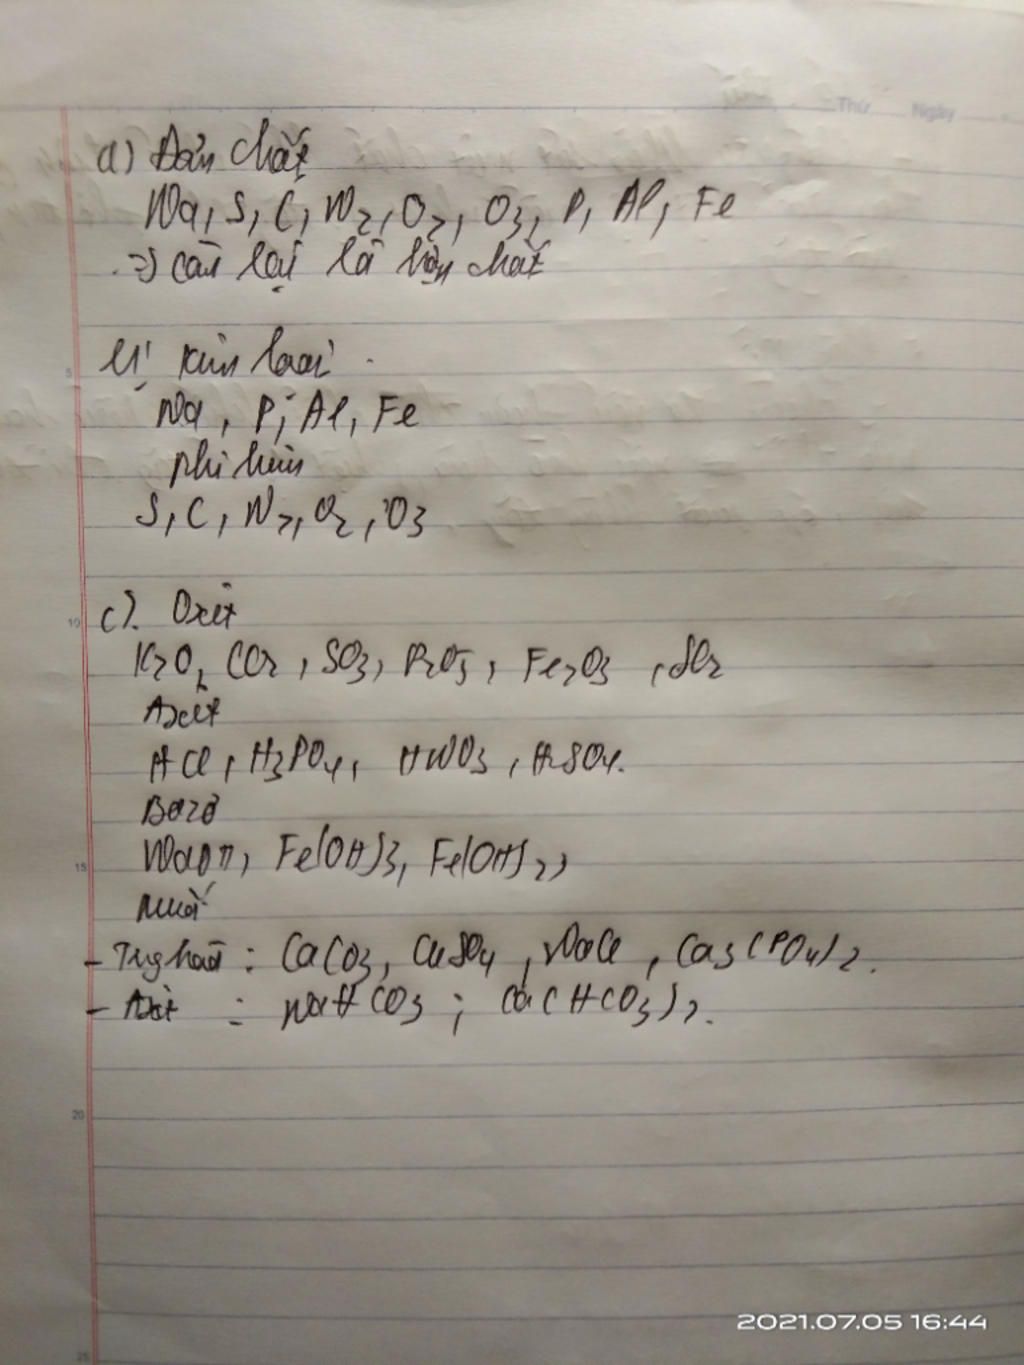 Thứ Ngày
a) Đơn chất
Na, S, C, N2, O2, O3, P, Al, Fe
=> còn lại là hợp chất
5
kim loại
Na, P, Al, Fe
phi kim
S, C, N2, O2, O3
10
c). Oxit
K2O, CO2, SO3, P2O5, Fe2O3, SO2
Axit
HCl, H3PO4, HNO3, H2SO4.
Bazơ
15
NaOH, Fe(OH)3, Fe(OH)2,
Muối
- Trung hoà : CaCO3, CuSO4, NaCl, Ca3(PO4)2.
- Axit : NaHCO3 ; Ca(HCO3)2.
20
25
2021.07.05 16:44